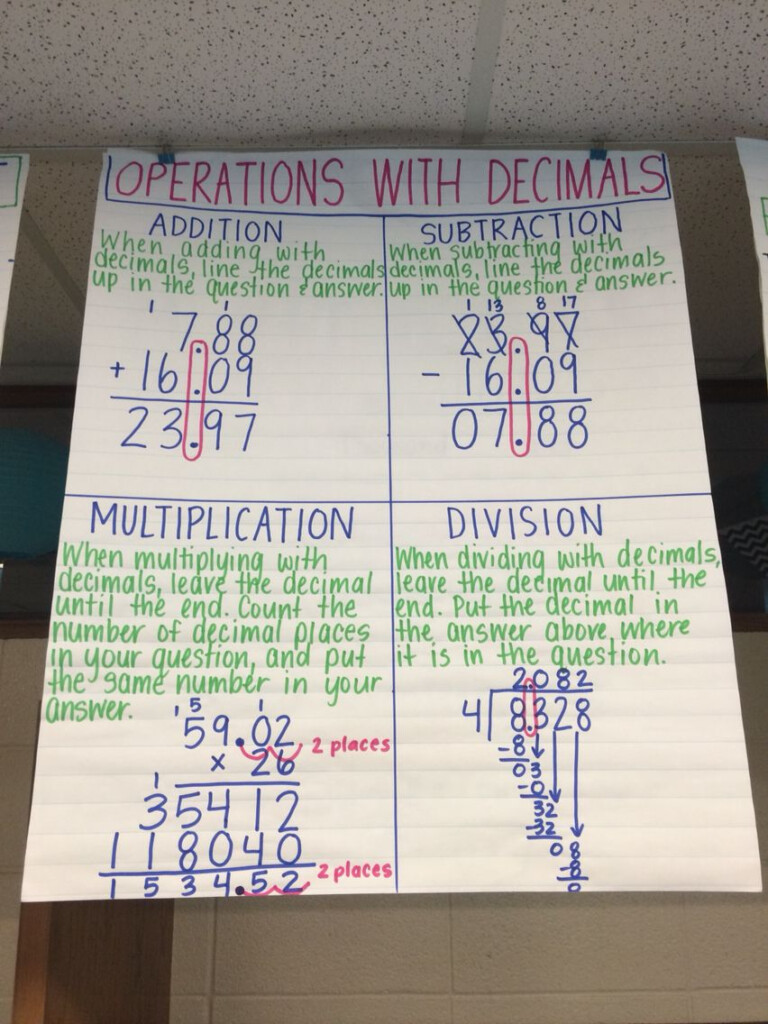 OPERATIONS WITH DECIMALS
ADDITION
When adding with
decimals, line the decimals
up in the question & answer.
1 1
7.88
+ 16.09
23.97
SUBTRACTION
When subtracting with
decimals, line the decimals
up in the question & answer.
1 13 8 17
23.97
- 16.09
07.88
MULTIPLICATION
When multiplying with
decimals, leave the decimal
until the end. Count the
number of decimal places
in your question, and put
the same number in your
answer.
1 5 1
59.02 2 places
x 26
1
35412
118040
1534.52 2 places
DIVISION
When dividing with decimals,
leave the decimal until the
end. Put the decimal in
the answer above where
it is in the question.
2.082
4 8.328
-8
03
-0
32
-32
0 8
-8
0